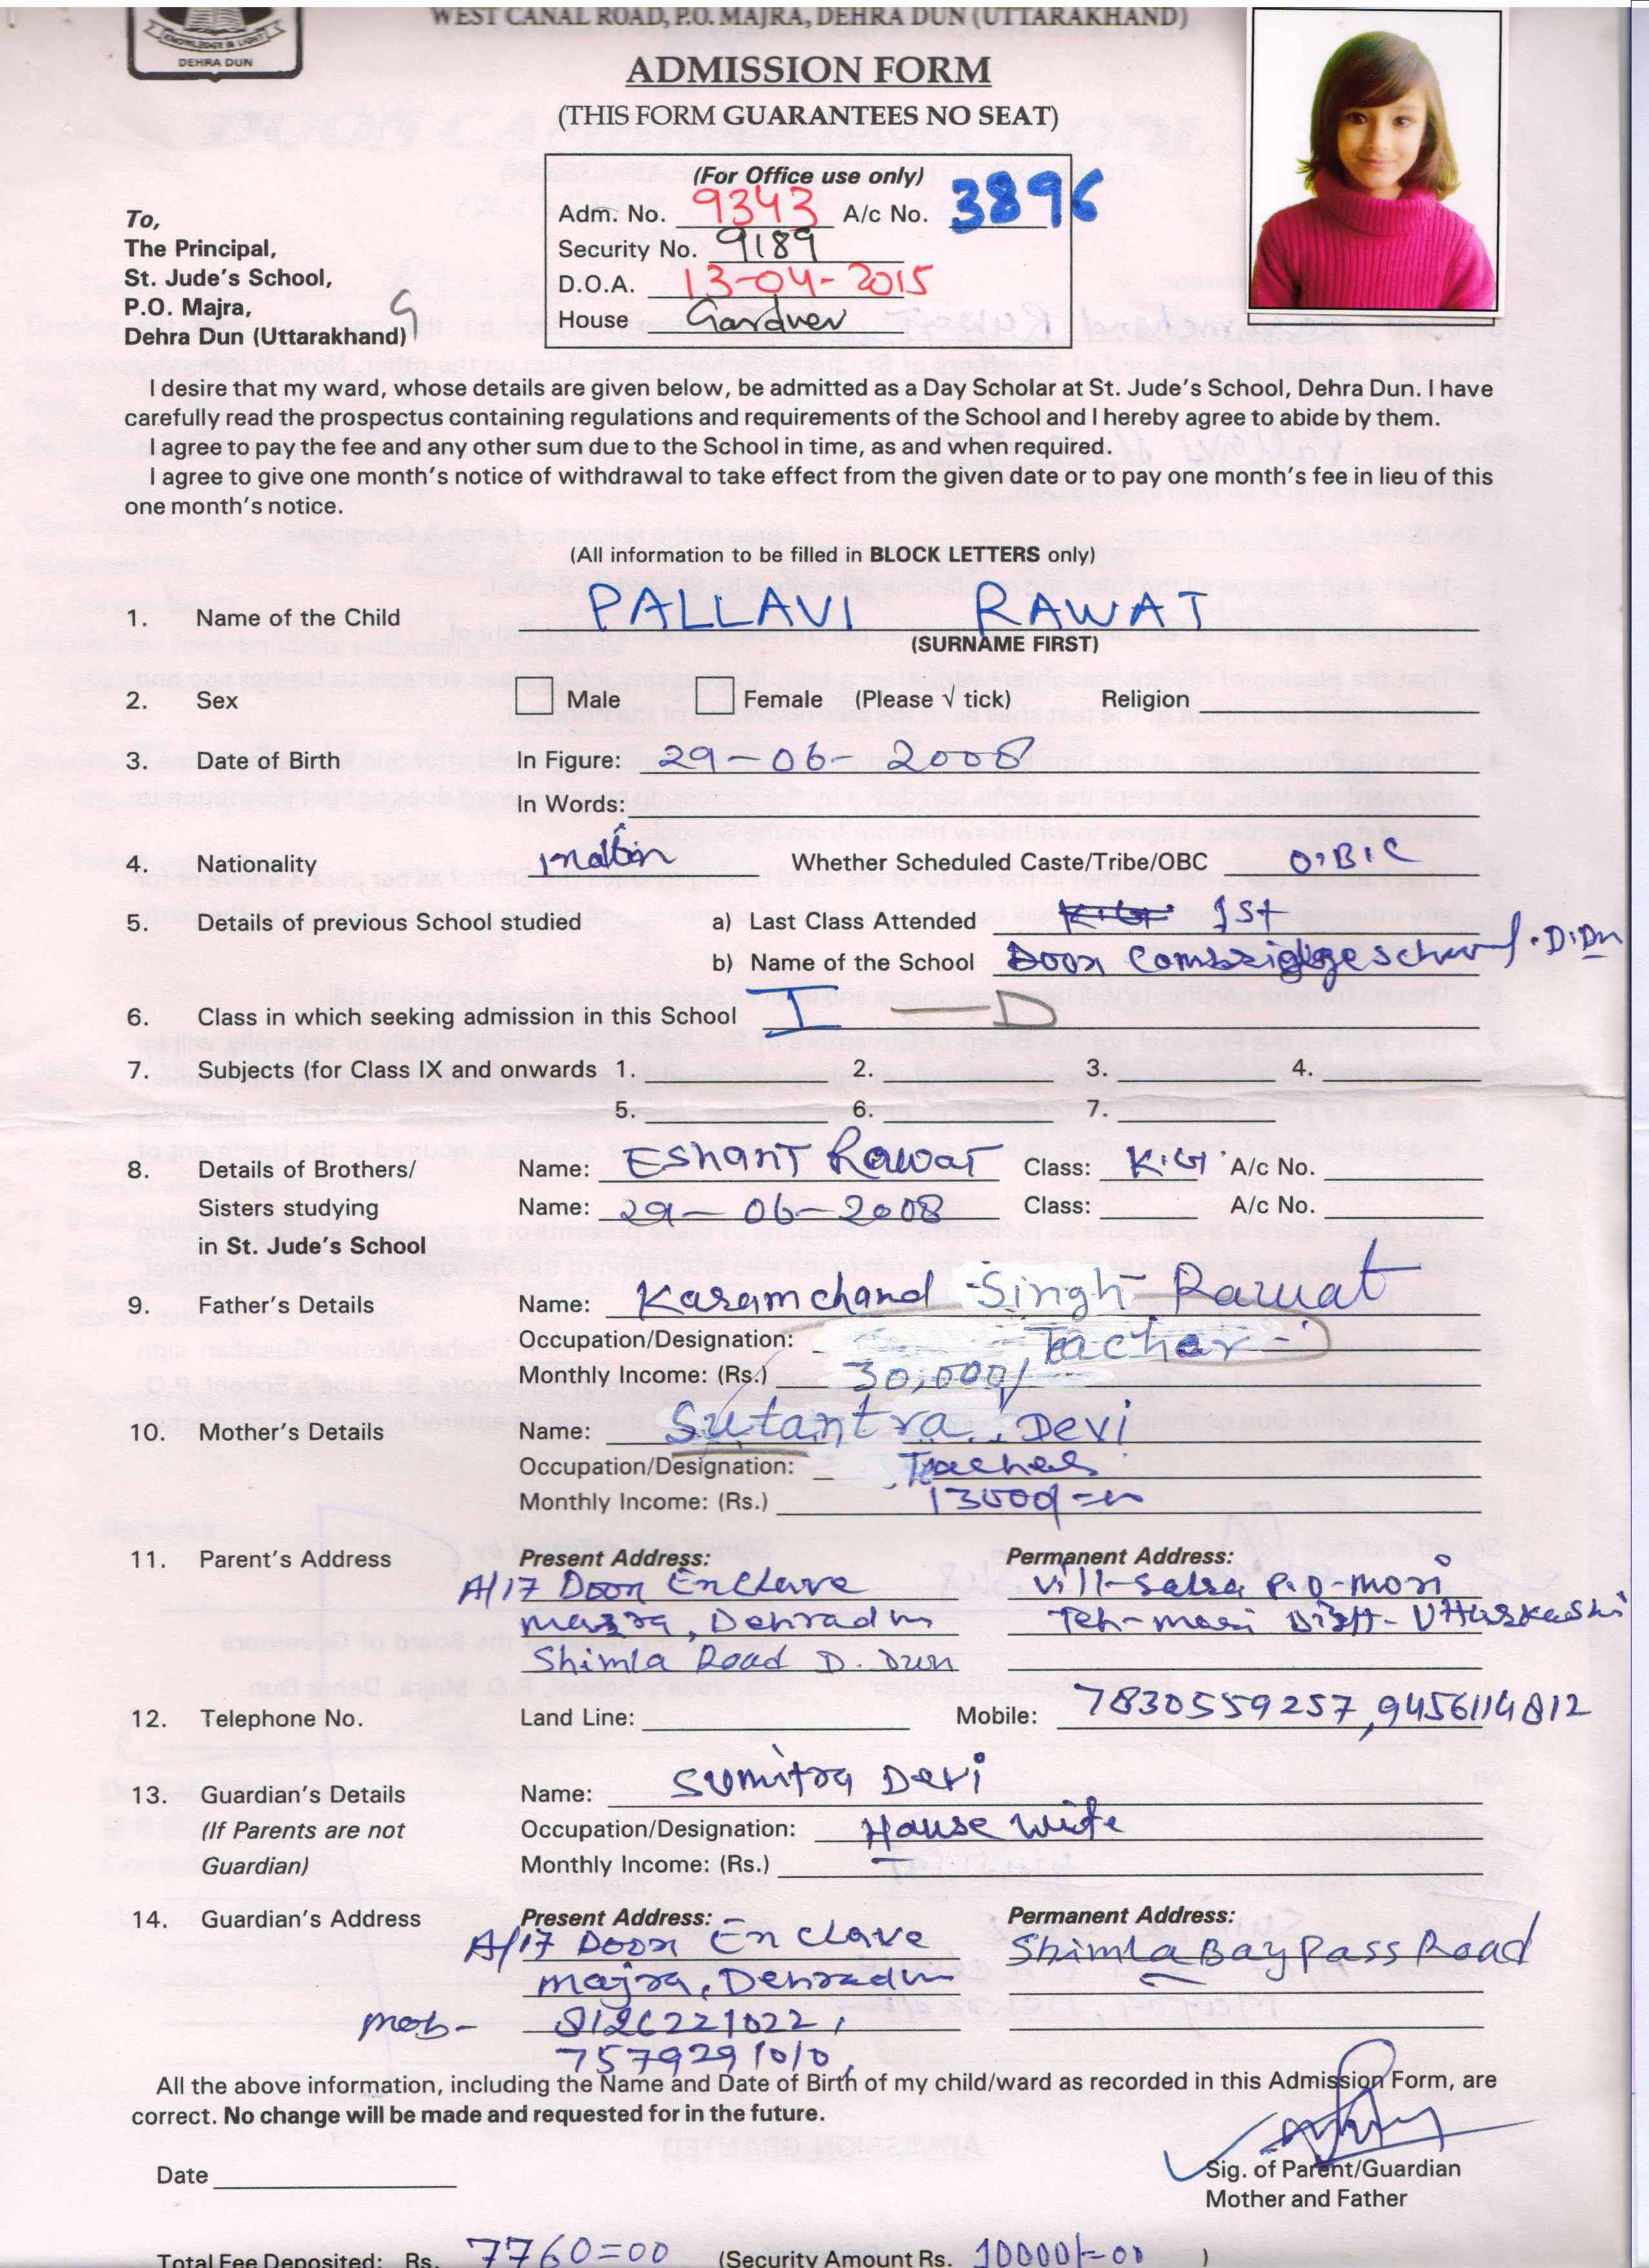 KNOWLEDGE IS LIGHT
DEHRA DUN
WEST CANAL ROAD, P.O. MAJRA, DEHRA DUN (UTTARAKHAND)
ADMISSION FORM
(THIS FORM GUARANTEES NO SEAT)
(For Office use only)
Adm. No. 9343 A/c No. 3896
Security No. 9189
D.O.A. 13-04-2015
House Gardner
To,
The Principal,
St. Jude's School,
P.O. Majra,
Dehra Dun (Uttarakhand)
G
I desire that my ward, whose details are given below, be admitted as a Day Scholar at St. Jude's School, Dehra Dun. I have
carefully read the prospectus containing regulations and requirements of the School and I hereby agree to abide by them.
I agree to pay the fee and any other sum due to the School in time, as and when required.
I agree to give one month's notice of withdrawal to take effect from the given date or to pay one month's fee in lieu of this
one month's notice.
(All information to be filled in BLOCK LETTERS only)
1. Name of the Child PALLAVI RAWAT
(SURNAME FIRST)
2. Sex Male Female (Please √ tick) Religion
3. Date of Birth In Figure: 29-06-2008
In Words:
4. Nationality Whether Scheduled Caste/Tribe/OBC O.B.C
5. Details of previous School studied a) Last Class Attended K.G 1st
b) Name of the School Doon Combridge school. D.Dn
6. Class in which seeking admission in this School I - D
7. Subjects (for Class IX and onwards 1. 2. 3. 4.
5. 6. 7.
8. Details of Brothers/ Name: EShanT Rawat Class: K.G. A/c No.
Sisters studying Name: 29-06-2008 Class: A/c No.
in St. Jude's School
9. Father's Details Name: Karamchand Singh Rawat
Occupation/Designation: Teachar
Monthly Income: (Rs.) 30,000/
10. Mother's Details Name: Sutantra Devi
Occupation/Designation: Teacher
Monthly Income: (Rs.)
11. Parent's Address Present Address: Permanent Address:
A/17 Doon Enclave Vill-Salra P.O-mori
majra, Dehradun Teh-mori Distt- Uttarkashi
Shimla Road D. Dun
12. Telephone No. Land Line: Mobile: 7830559257, 9456114812
13. Guardian's Details Name: Sumitra Devi
(If Parents are not Occupation/Designation: House wife
Guardian) Monthly Income: (Rs.)
14. Guardian's Address Present Address: Permanent Address:
A/17 Doon Enclave Shimla Bay Pass Road
majra, Dehradun
mob- 8126221022,
7579291010,
All the above information, including the Name and Date of Birth of my child/ward as recorded in this Admission Form, are
correct. No change will be made and requested for in the future.
Date
Sig. of Parent/Guardian
Mother and Father
Total Fee Deposited: Rs. 7760=00 (Security Amount Rs. 10000/=00 )